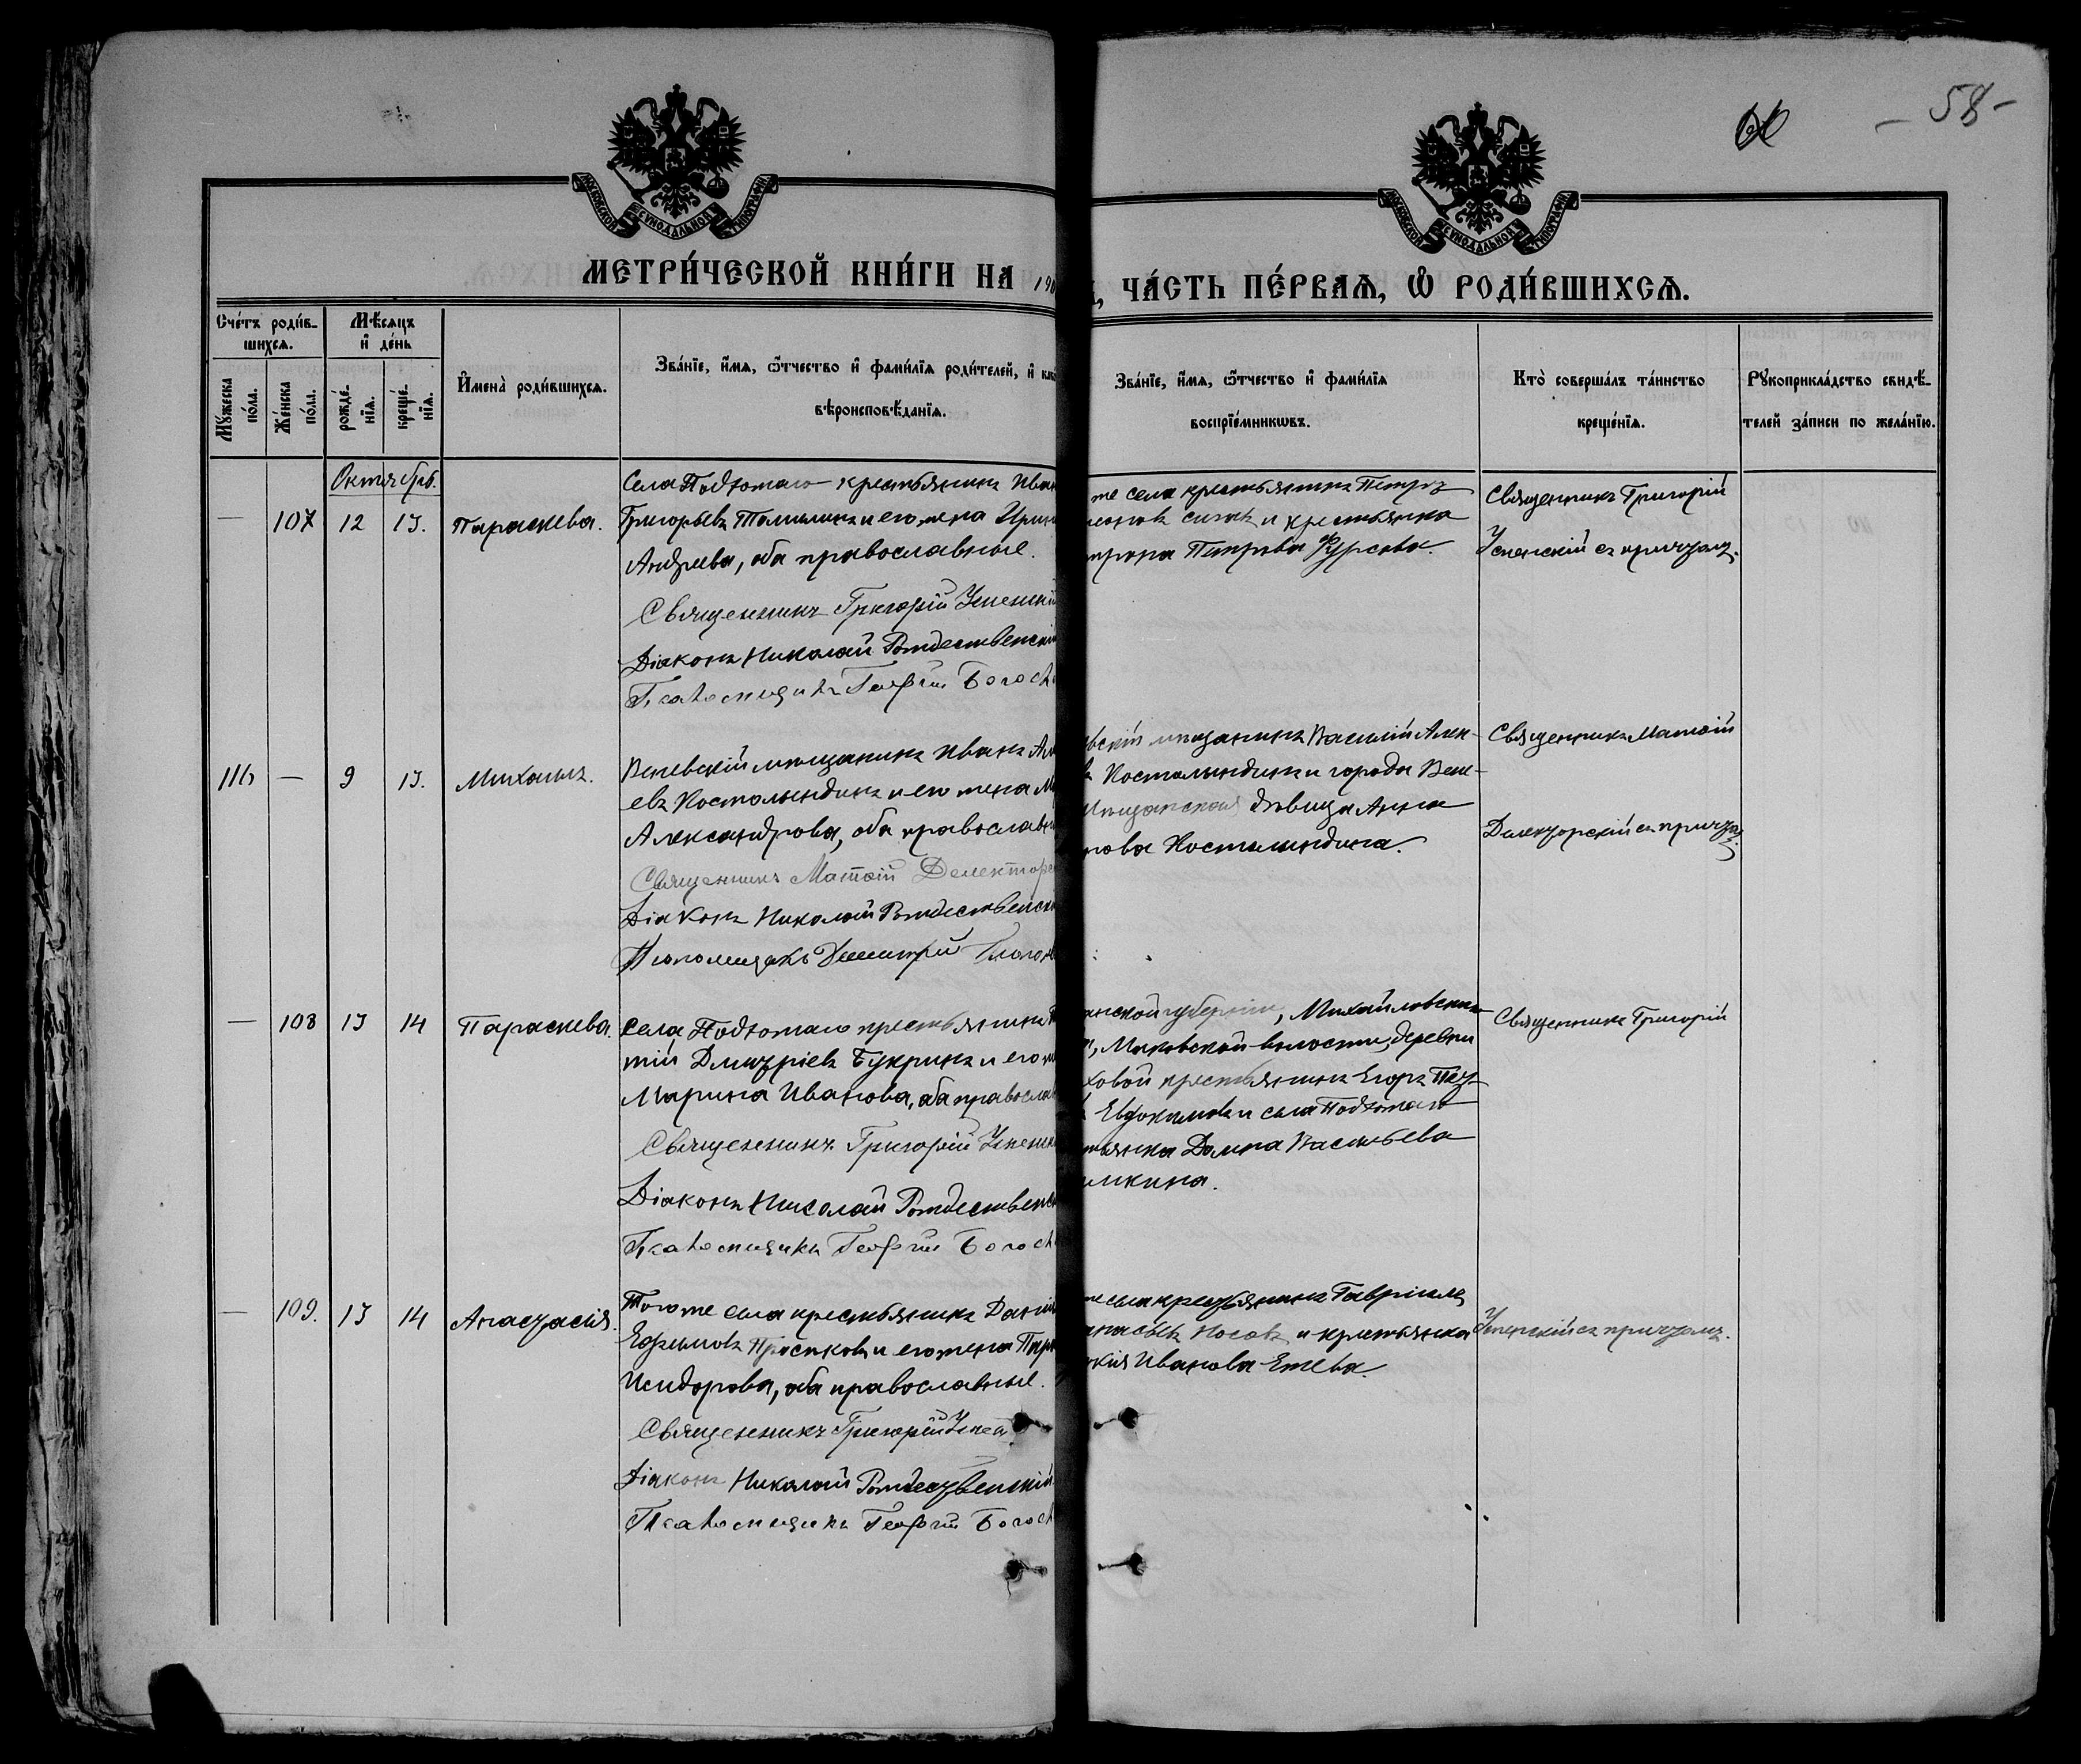 60
- 58 -
МОСКОВСКОЙ СѴНОДАЛЬНОЙ ТИПОГРАФІИ
МОСКОВСКОЙ СѴНОДАЛЬНОЙ ТИПОГРАФІИ
МЕТРИ́ЧЕСКОЙ КНИ́ГИ НА 190
, ЧА́СТЬ ПЕ́РВАѦ, Ѡ РОДИ́ВШИХСѦ.
Сче́тъ роди́в-
шихсѧ.
Мꙋ́жеска по́ла.
Же́нска по́ла.
Мѣ́сѧцъ
и҆ де́нь
рожде́-
нїѧ.
креще́-
нїѧ.
И҆мена̀ роди́вшихсѧ.
Зва́нїе, и҆́мѧ, ѻ҆́тчество и҆ фами́лїѧ роди́телей, и҆ как
вѣроисповѣ́данїѧ.
Зва́нїе, и҆́мѧ, ѻ҆́тчество и҆ фами́лїѧ
воспрїе́мникѡвъ.
Кто̀ соверша́лъ та́инство
креще́нїѧ.
Рꙋкоприкла́дство свидѣ́-
телей за́писи по жела́нїю.
Октябрь.
— 107 12 13. Параскева.
Села Подхожаго крестьянинъ Иван
Григорьевъ и его жена Ирин
Андреева, оба православные.
Священникъ Григорій Успенскій
Діаконъ Николай Рождественскій
Псаломщикъ Георгій Богосл
же села крестьянинъ Петръ
и крестьянка
Петрова Фурсова.
Священникъ Григорій
Успенскій съ причтомъ.
116 — 9 13. Михаилъ.
Веневскій мѣщанинъ Иванъ Ал
евъ Костомындинъ и его жена М
Александрова, оба православн
Священникъ Матѳій Делекторс
Діаконъ Николай Рождественск
Псаломщикъ Димитрій Глаголе
вскій мѣщанинъ Василій Алек-
въ Костомындинъ и города Вене-
мѣщанская дѣвица Анна
нова Костомындина.
Священникъ Матѳій
Делекторскій съ причтомъ.
— 108 13 14 Параскева.
Села Подхожаго крестьянинъ
тій Дмитріевъ Букринъ и его ж
Марина Иванова, оба православ
Священникъ Григорій Успенск
Діаконъ Николай Рождественск
Псаломщикъ Георгій Богосл
анской губерніи, Михайловска
, Маковской волости, деревни
ховой крестьянинъ Егоръ Пет-
Евдокимовъ и села Подхожаго
тьянка Домна Васильева
мкина.
Священникъ Григорій
— 109. 13 14 Анастасія.
Того же села крестьянинъ Даніи
Ефимовъ Просяковъ и его жена Пар
Исидорова, оба православные.
Священникъ Григорій Успен
Діаконъ Николай Рождественскій
Псаломщикъ Георгій Богосл
же села крестьянинъ Гавріилъ
анасьевъ Носовъ и крестьянка
Иванова Ежева.
Успенскій съ причтомъ.